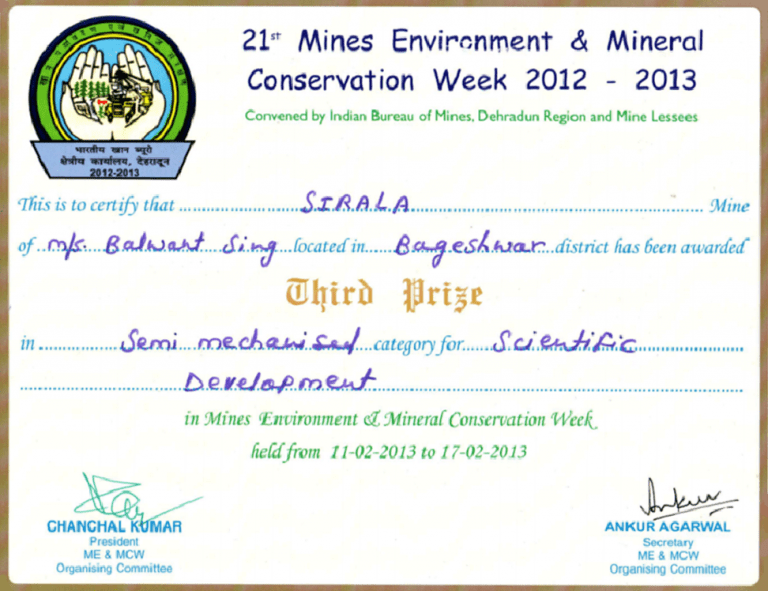 21st Mines Environment & Mineral
Conservation Week 2012 - 2013
Convened by Indian Bureau of Mines, Dehradun Region and Mine Lessees
भारतीय खान ब्यूरो
क्षेत्रीय कार्यालय, देहरादून
2012-2013
This is to certify that SIRALA Mine
of M/s. Balwant Sing located in Bageshwar district has been awarded
Third Prize
in Semi mechanised category for Scientific
Development
in Mines Environment & Mineral Conservation Week
held from 11-02-2013 to 17-02-2013
CHANCHAL KUMAR
President
ME & MCW
Organising Committee
Ankur
ANKUR AGARWAL
Secretary
ME & MCW
Organising Committee